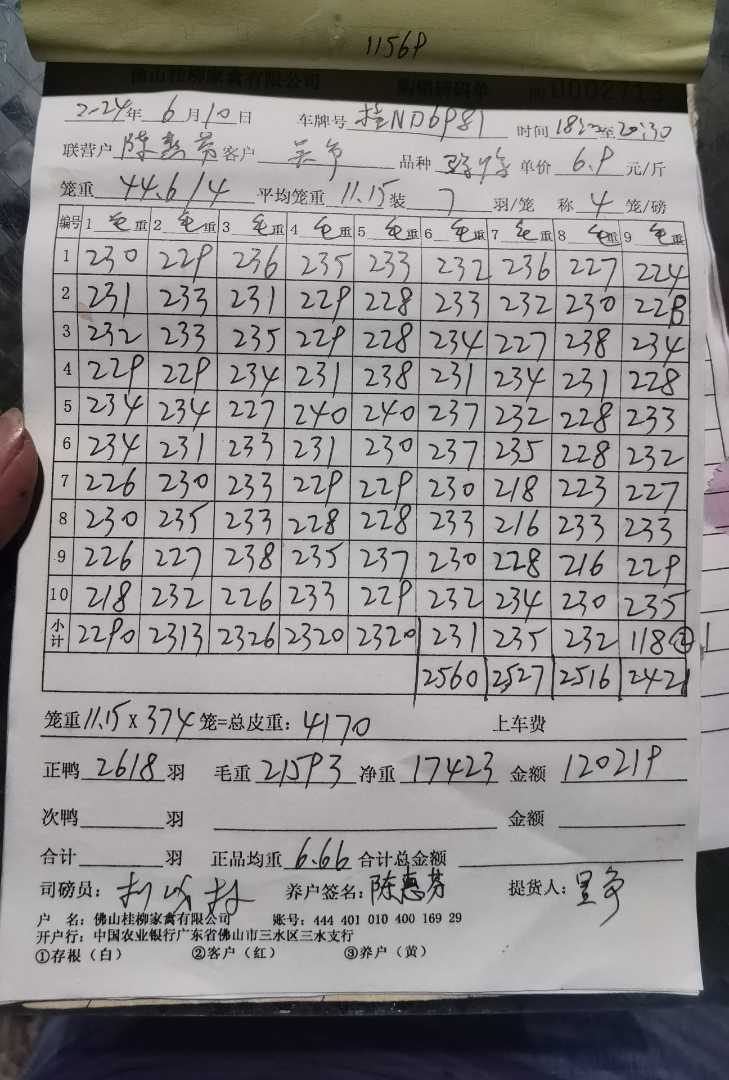 11569
佛山桂柳家禽有限公司 购销磅码单 0002713
2024年 6月10日 车牌号 桂ND6981 时间 18:20至20:30
联营户 陈惠芬 客户 吴争 品种 单价 6.9 元/斤
笼重 44.6/4 平均笼重 11.15 装 7 羽/笼 称 4 笼/磅
编号 1 毛重 2 毛重 3 毛重 4 毛重 5 毛重 6 毛重 7 毛重 8 毛重 9 毛重
1 230 229 236 235 233 232 236 227 224
2 231 233 231 229 228 233 232 230 228
3 232 233 235 229 228 234 227 238 234
4 229 229 234 231 238 231 234 231 228
5 234 234 227 240 240 237 232 228 233
6 234 231 233 231 230 237 235 228 232
7 226 230 233 229 229 230 218 223 227
8 230 235 233 228 228 233 216 233 233
9 226 227 238 235 237 230 228 216 229
10 218 232 226 233 229 232 234 230 235
小计 2290 2313 2326 2320 2320 231 235 232 118②
2560 2527 2516 2421
笼重 11.15 X 374 笼=总皮重: 4170 上车费
正鸭 2618 羽 毛重 21593 净重 17423 金额 120219
次鸭 羽 金额
合计 羽 正品均重 6.66 合计总金额
司磅员: 养户签名: 陈惠芬 提货人: 吴争
户 名: 佛山桂柳家禽有限公司 账号: 444 401 010 400 169 29
开户行: 中国农业银行广东省佛山市三水区三水支行
①存根（白） ②客户（红） ③养户（黄）